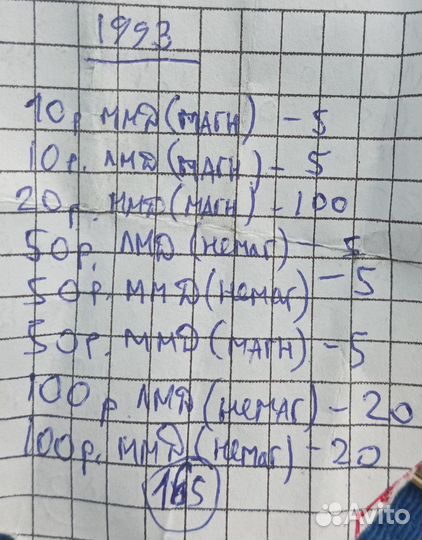 1993
10р ММД (МАГН) - 5
10р. ЛМД (МАГН) - 5
20р. ММД (МАГН) - 100
50р. ЛМД (НЕМАГ) - 5
50р. ММД (НЕМАГ) - 5
50р. ММД (МАГН) - 5
100р ЛМД (НЕМАГ) - 20
100р. ММД (НЕМАГ) - 20
165
Avito